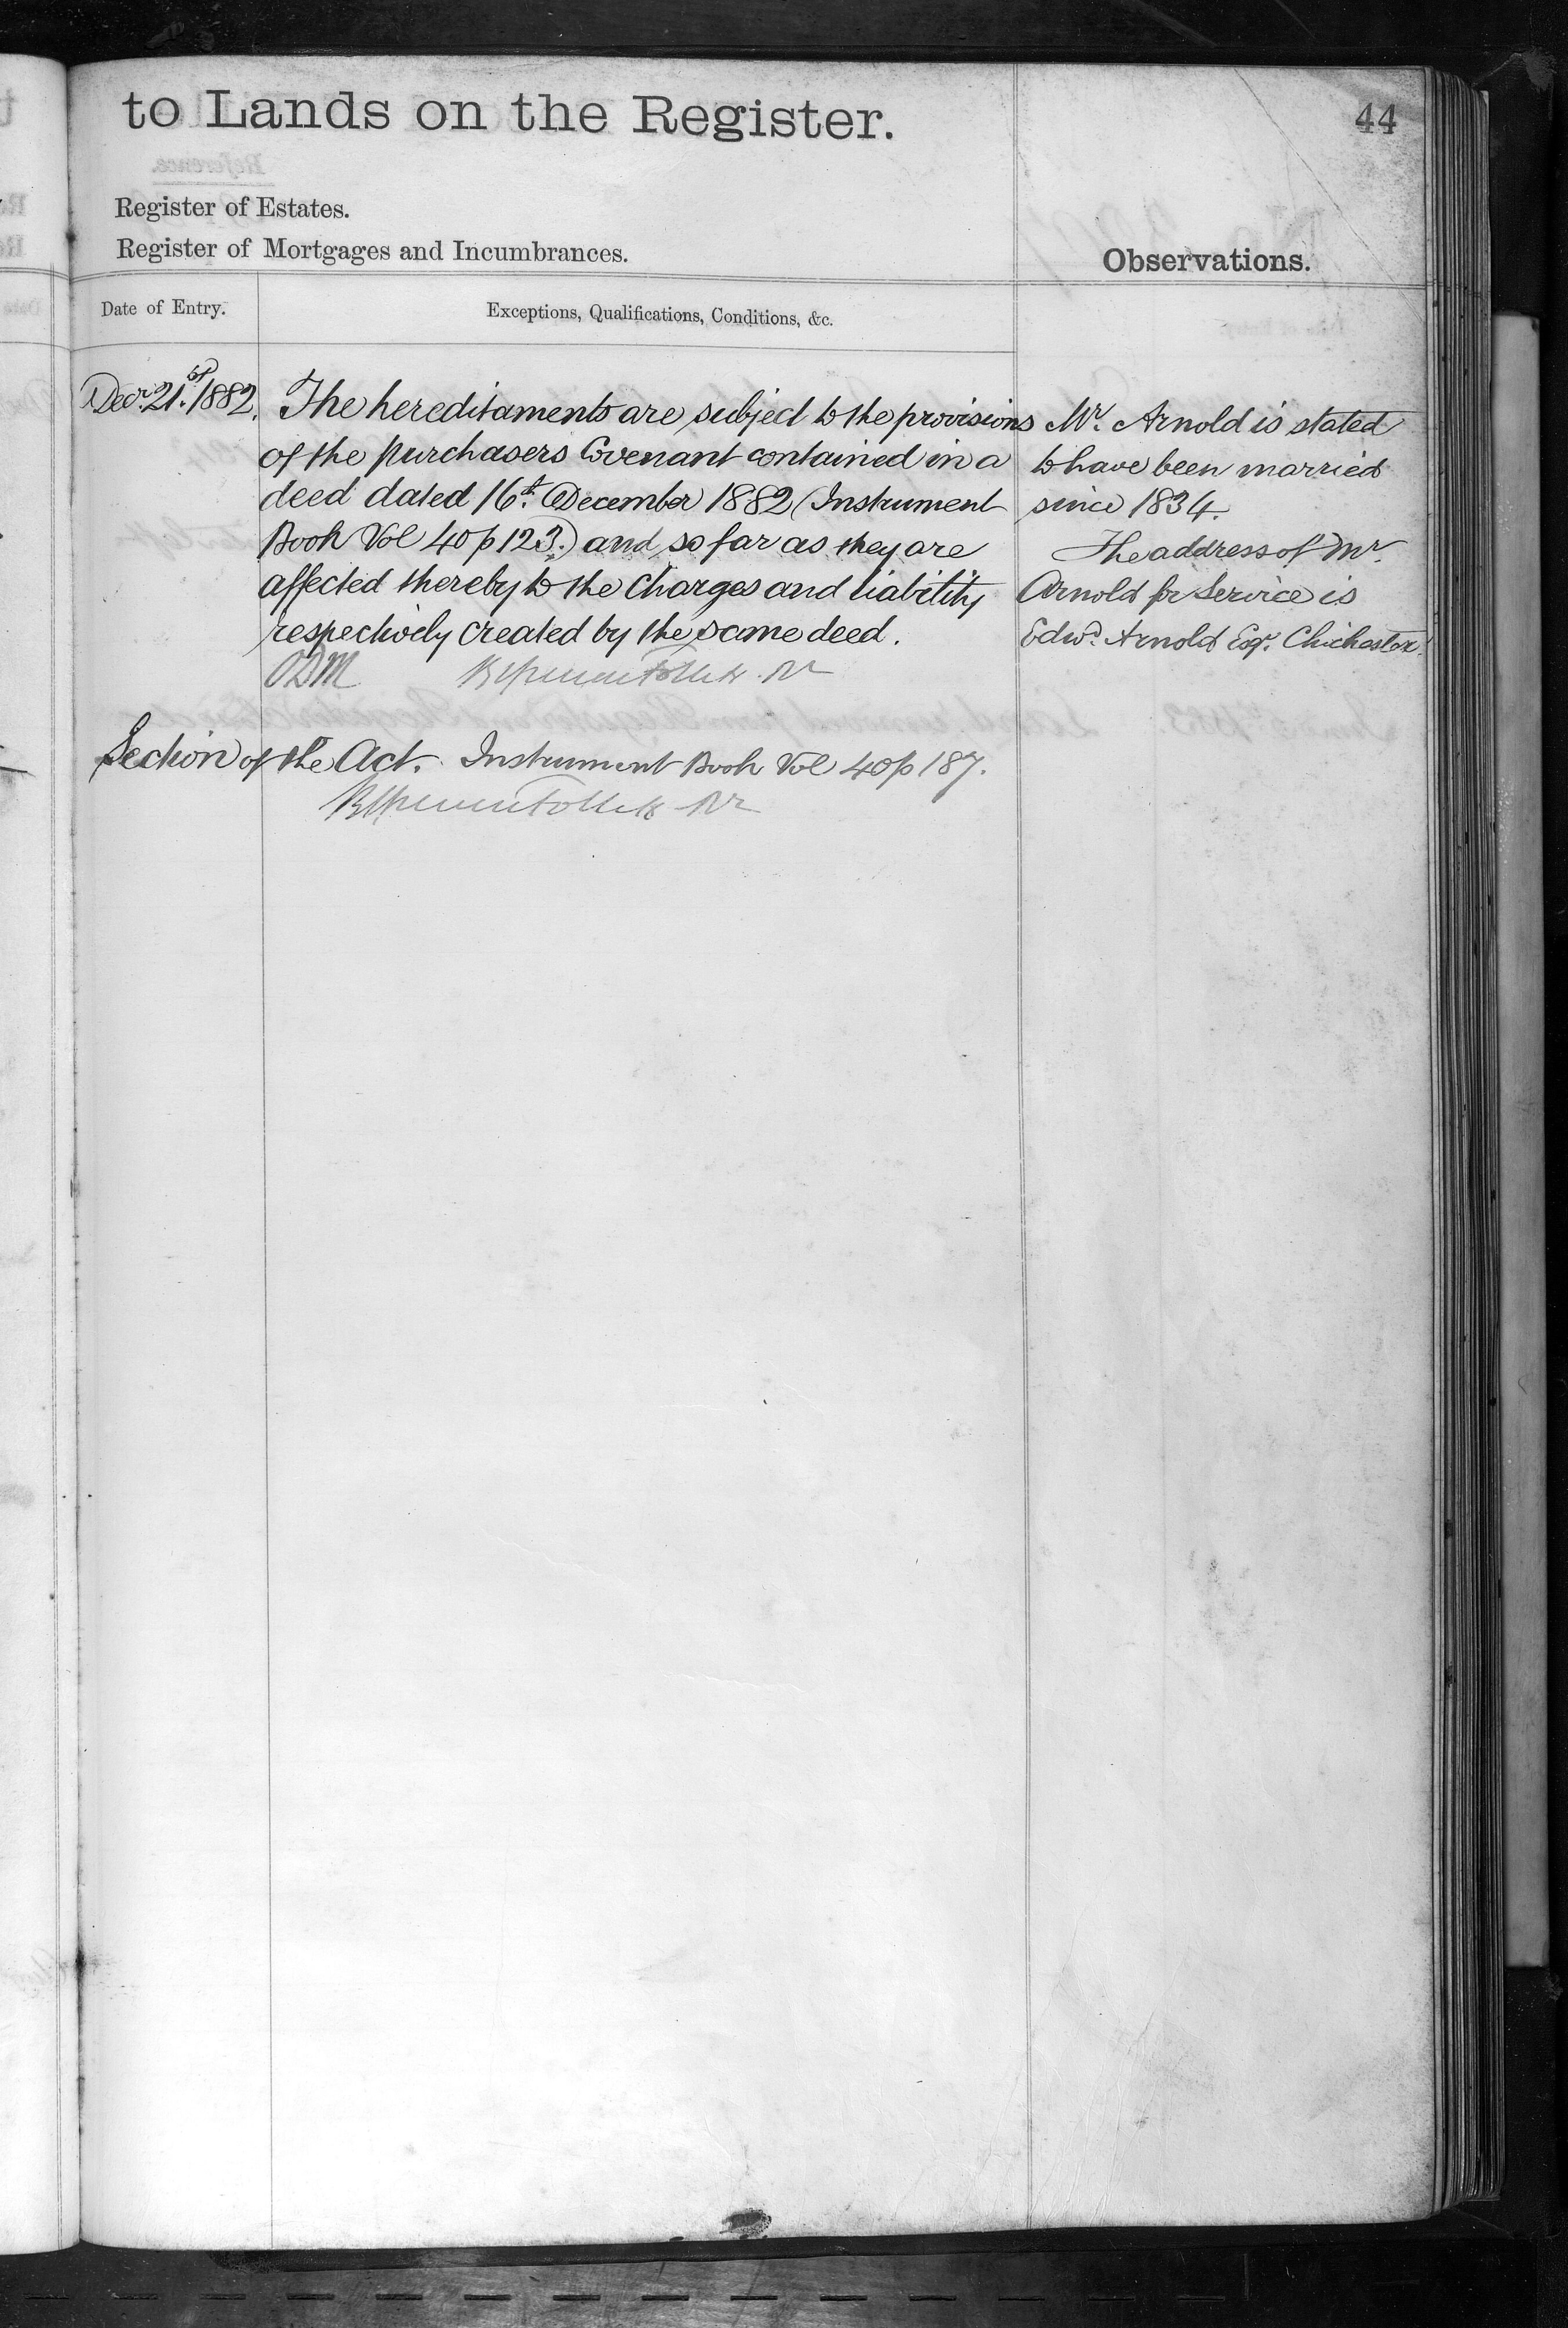 to Lands on the Register.
44
Register of Estates.
Register of Mortgages and Incumbrances.
Observations.
Date of Entry.
Exceptions, Qualifications, Conditions, &c.
Decr. 21st. 1882.
The hereditaments are subject to the provisions
of the purchasers Covenant contained in a
deed dated 16th. December 1882 (Instrument
Book Vol 40 p 123.) and so far as they are
affected thereby to the Charges and liability
respectively created by the same deed.
Section of the Act. Instrument Book Vol 40 p 187.
Mr. Arnold is stated
to have been married
since 1834.
The address of Mr.
Arnold for Service is
Edwd. Arnold Esqr. Chichester.